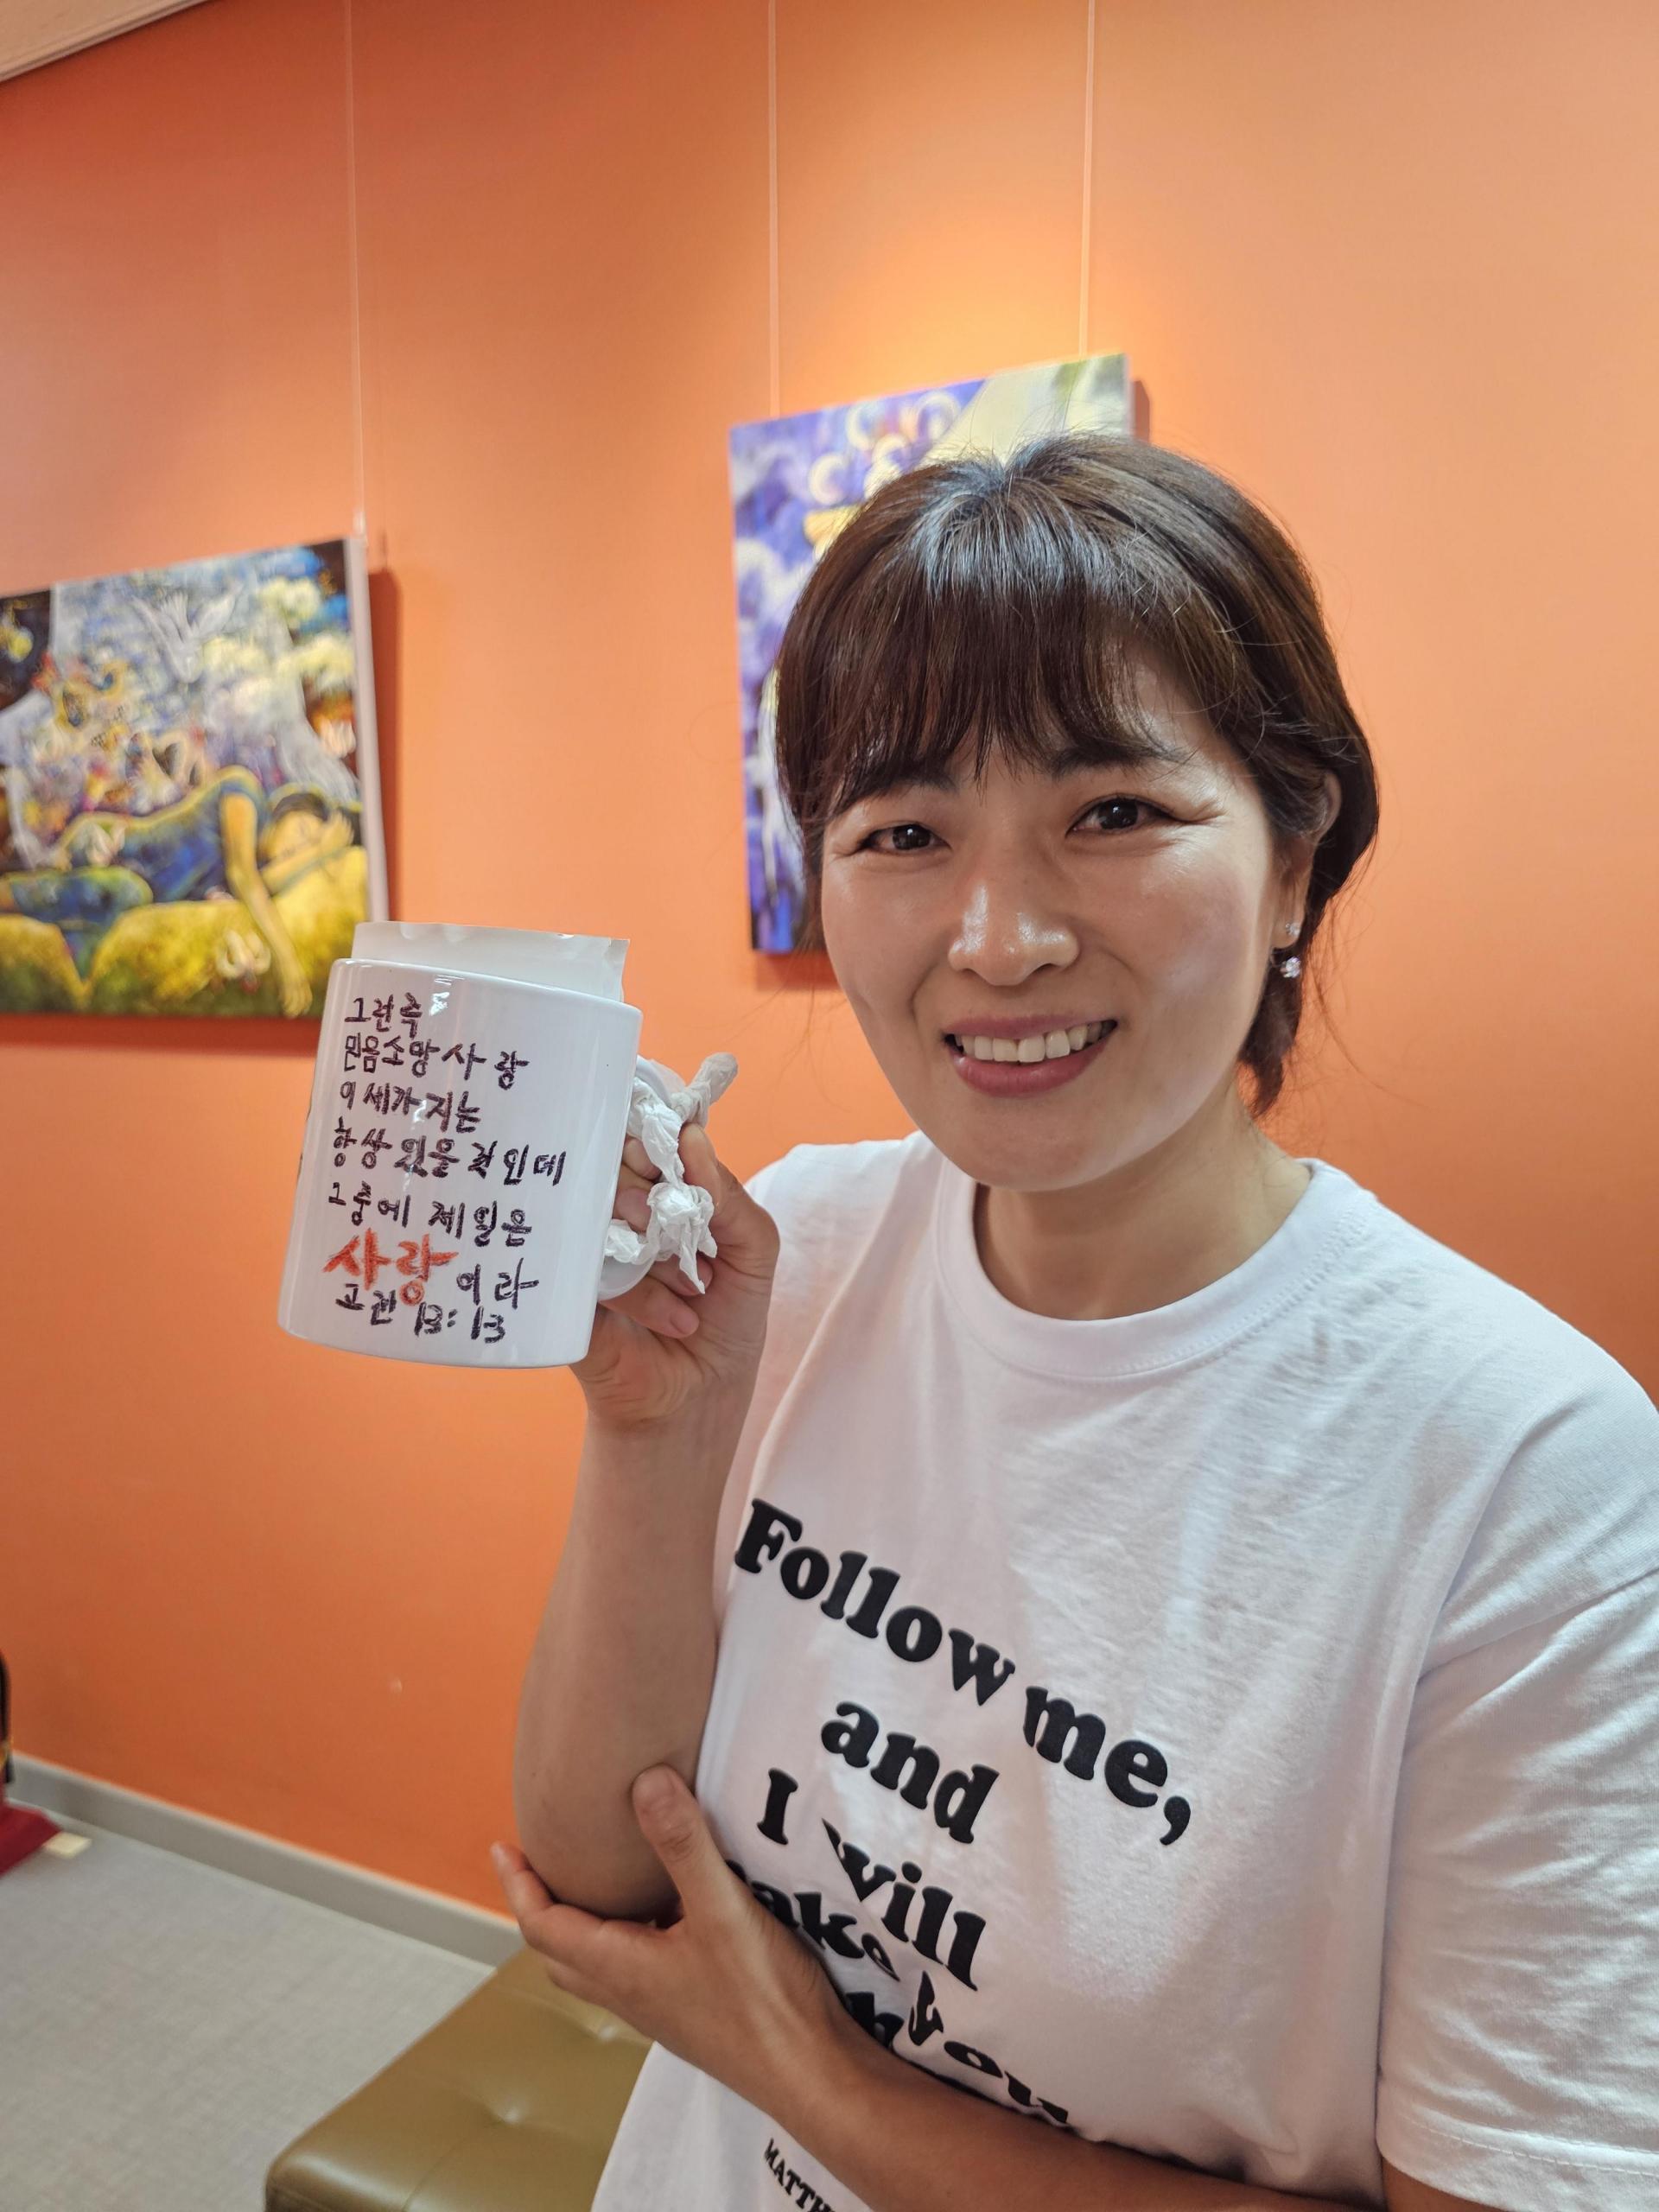 그런즉
믿음소망사랑
이세가지는
항상있을것인데
그중에 제일은
사랑이라
고전 13:13
Follow me,
and
I will
make you
MATTH